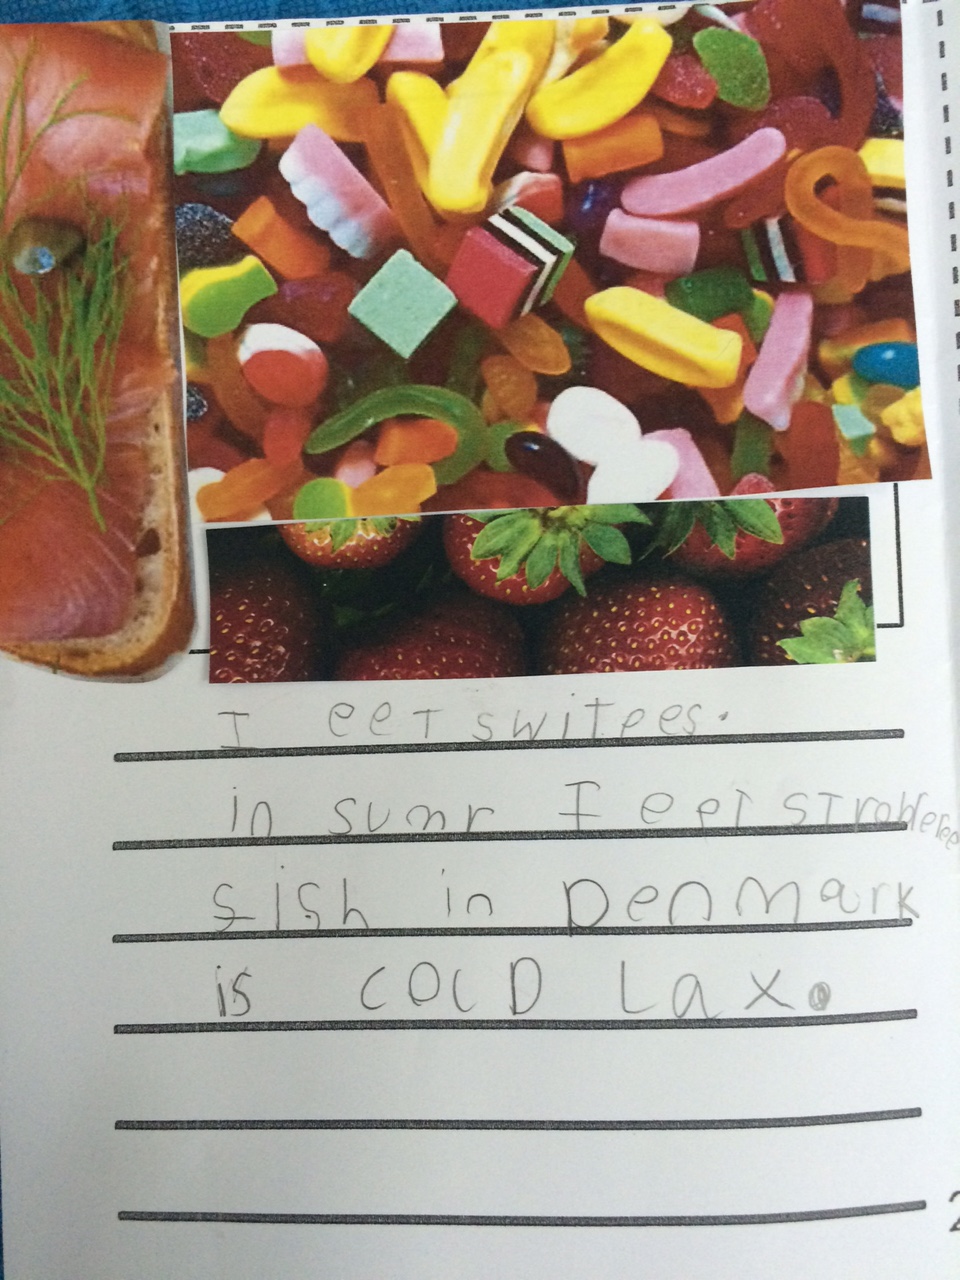 I eet switees.
in sumr I eet strobferee
fish in Denmark
is cOLD Lax.
2